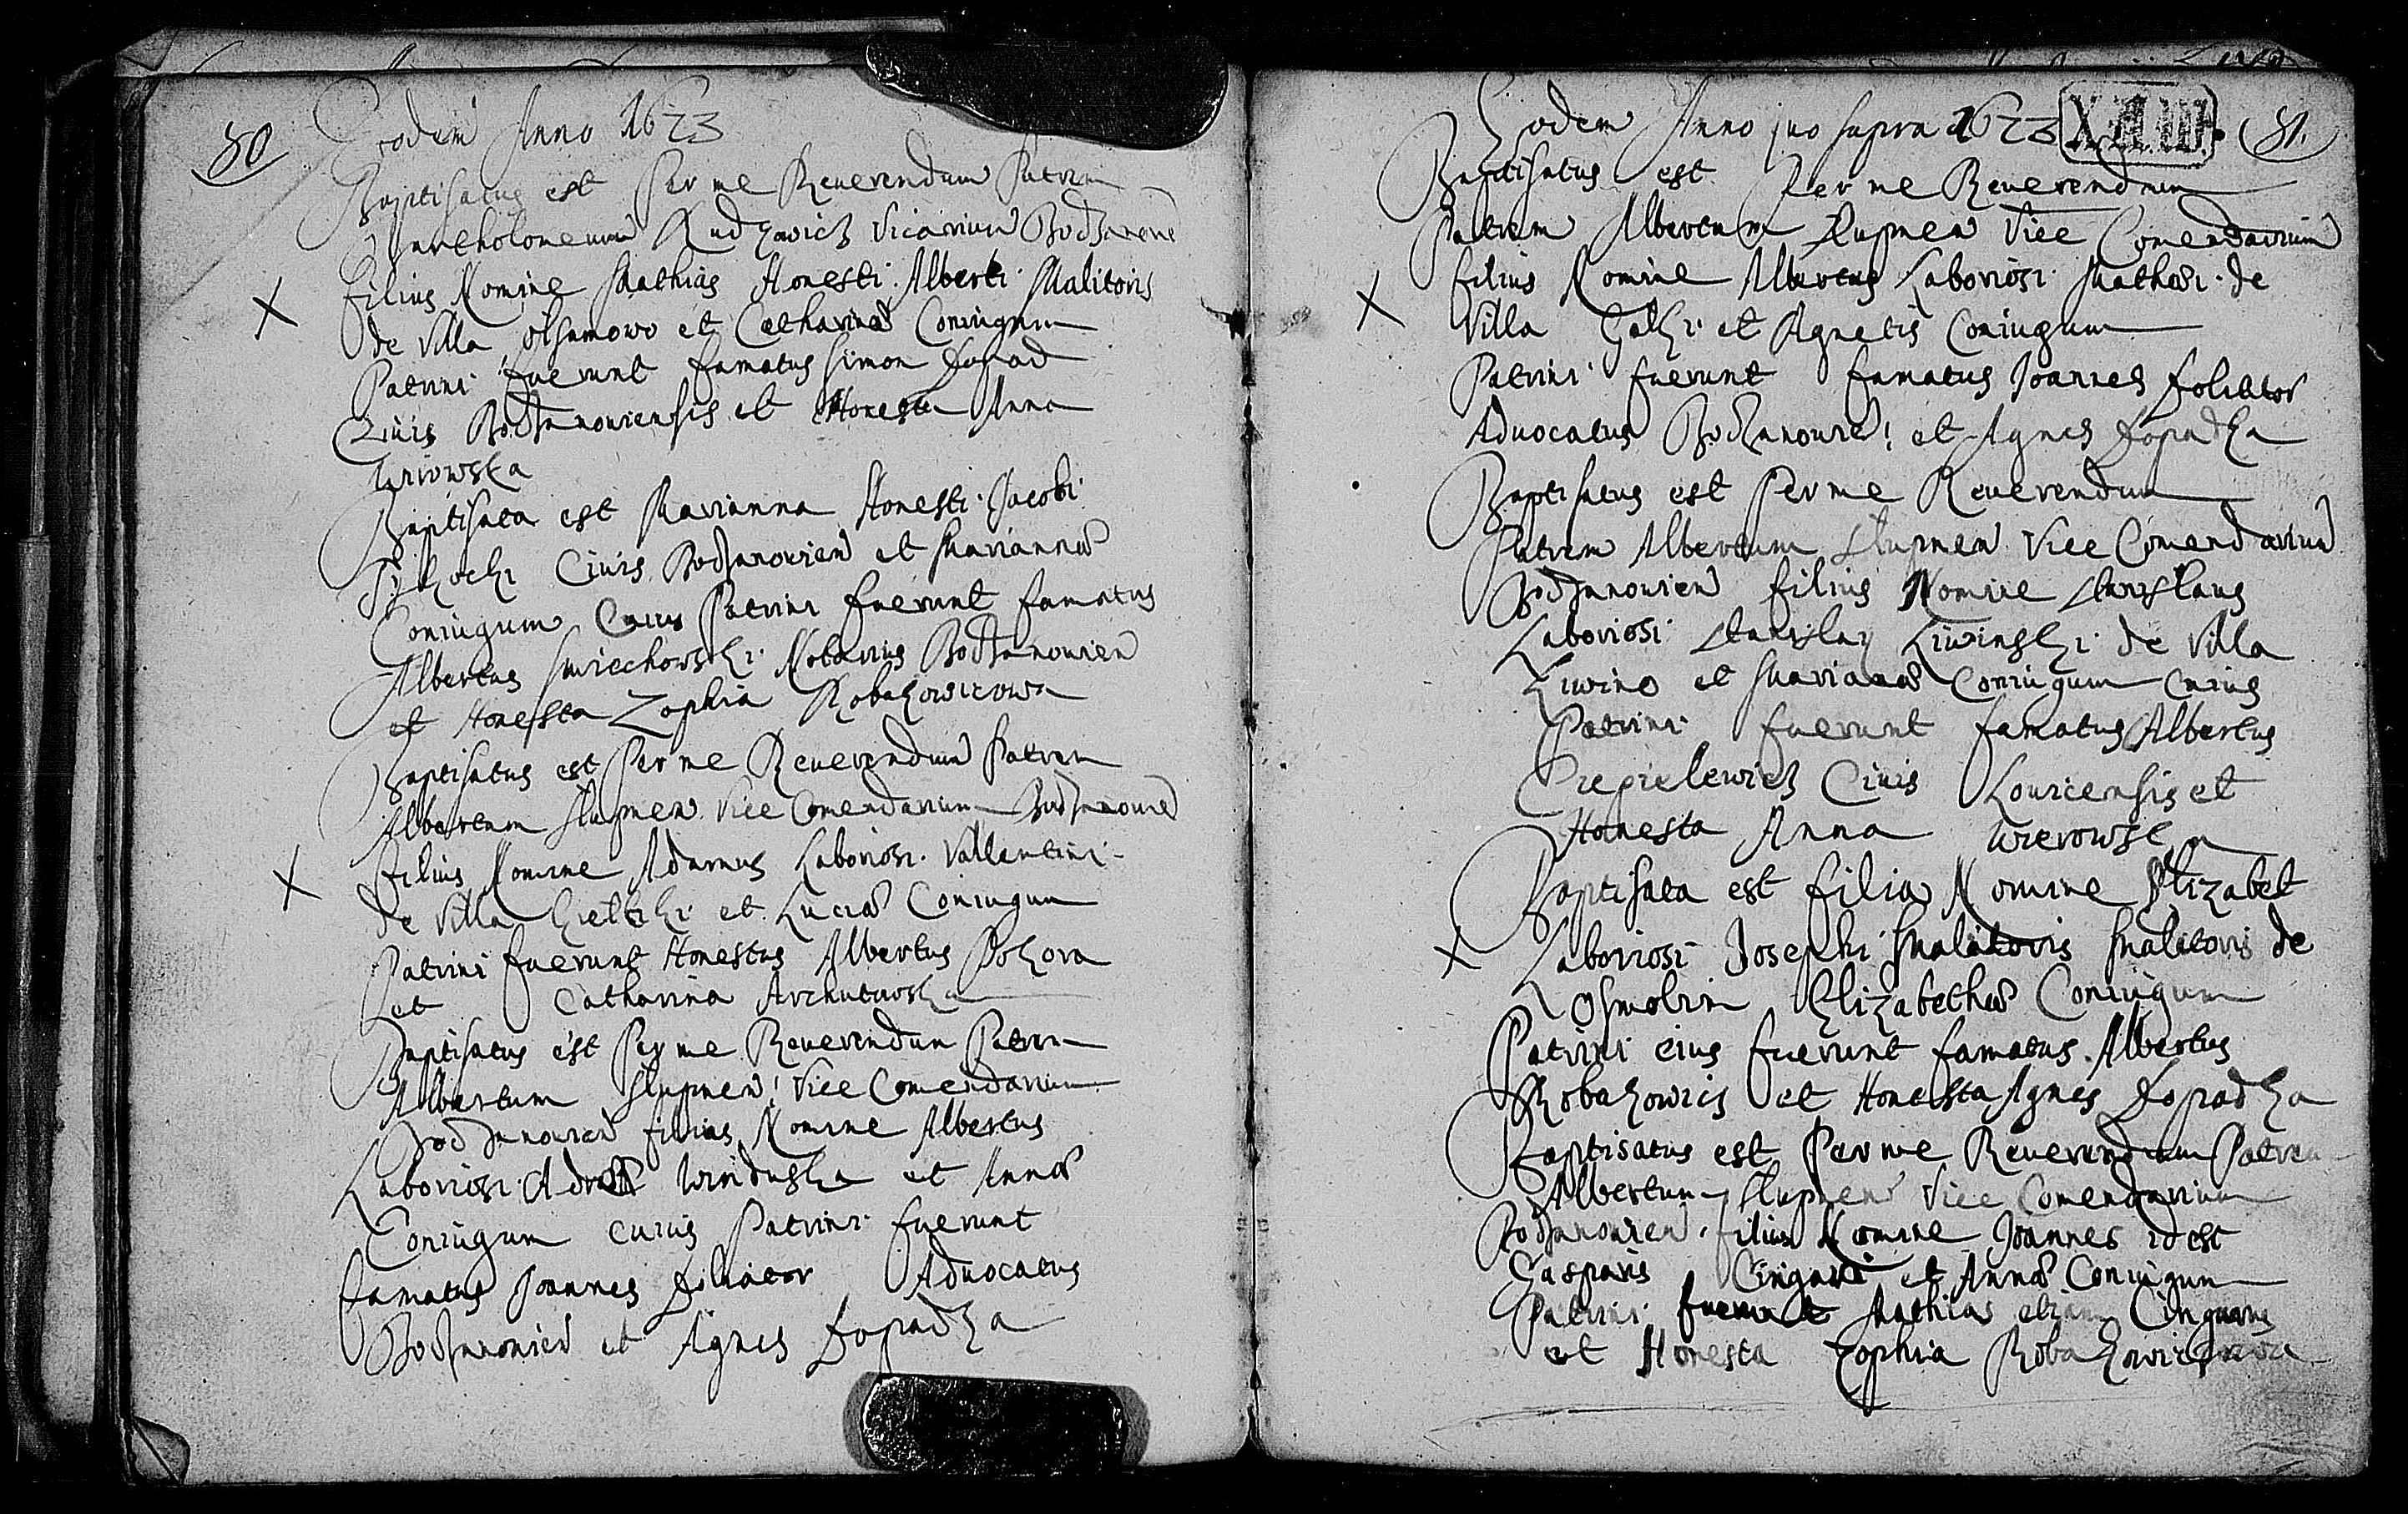 80 Eodem Anno 1673
Baptisatus est Per me Reuerendum Patrem
Bartholomeum Rudzowicz Vicarium Bodzanovien
X filius Nomine Mathias Honesti Alberti Malitoris
de Villa et Catharinæ Coniugum
Patrini fuerunt famatus Simon Łopad
Ciuis Bodzanouiensis et Honesta Anna
Wriowska
Baptisata est Marianna Honesti Jacobi
Ciuis Bodzanouien et Mariannæ
Coniugum Cuius Patrini fuerunt famatus
Albertus Swiechowski Notarius Bodzanouien
et Honesta Zophia Robakowicowa
Baptisatus est Per me Reuerendum Patrem
Albertum Slupnen Vice Comendarium Bodzanouien
X filius Nomine Adamus Laboriosi Vallentini
de Villa et Luciæ Coniugum
Patrini fuerunt Honestus Albertus
et Catharina Archutowska
Baptisatus est Per me Reuerendum Patrem
Albertum Slupnen Vice Comendarium
Bodzanouien filius Nomine Albertus
Laboriosi Winduska et Annæ
Coniugum cuius Patrini fuerunt
famatus Joannes Aduocatus
Bodzanouien et Agnes Łopadka
Eodem Anno quo supra 1673 81.
Baptisatus est Per me Reuerendum
Patrem Albertum Slupnen Vice Comendarium
X filius Nomine Albertus Laboriosi Mathæi de
Villa et Agnetis Coniugum
Patrini fuerunt famatus Joannes
Aduocatus Bodzanouien et Agnes Łopadka
Baptisatus est Per me Reuerendum
Patrem Albertum Slupnen Vice Comendarium
Bodzanouien filius Nomine Stanislaus
Laboriosi Stanislay Liwinski de Villa
Liwino et Mariannæ Coniugum cuius
Patrini fuerunt famatus Albertus
Ciepielewicz Ciuis Louicensis et
Honesta Anna Wierowska
Baptisata est filia Nomine Elizabet
X Laboriosi Josephi Malitoris Malitoris de
Osmolin Elizabethæ Coniugum
Patrini eius fuerunt famatus Albertus
Robakowics et Honesta Agnes Łopadka
Baptisatus est Per me Reuerendum Patrem
Albertum Slupnen Vice Comendarium
Bodzanouien filius Nomine Joannes id est
Gasparis Cingari et Annæ Coniugum
Patrini fuerunt Mathias etiam Cingarus
et Honesta Zophia Robakowicowa